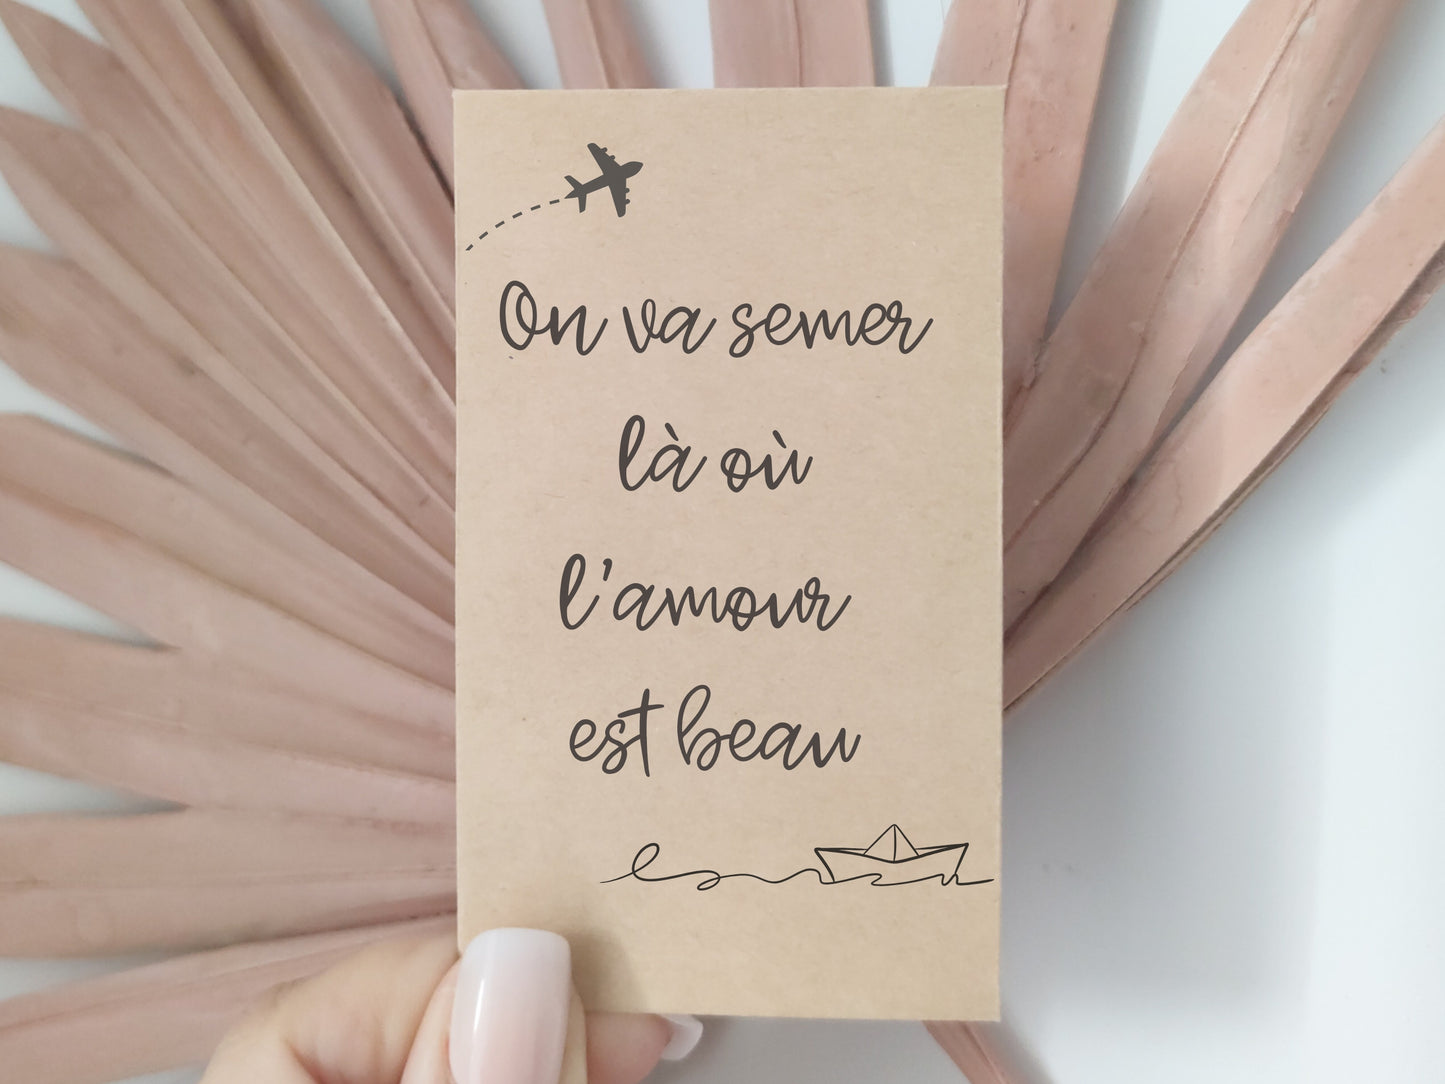 On va semer
là où
l'amour
est beau